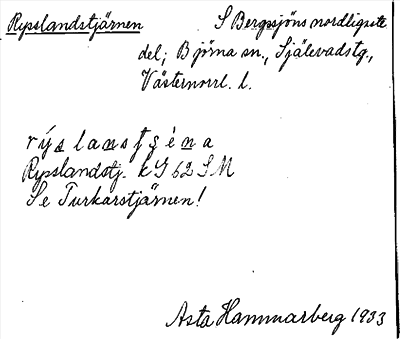 Rysslandstjärnen S Bergsjöns nordligste
del; Björna sn., Själevadstg.,
Västernorrl. l.
Rysslandstj. k G 62 S M
Se Turkarstjärnen!
Asta Hammarberg 1933